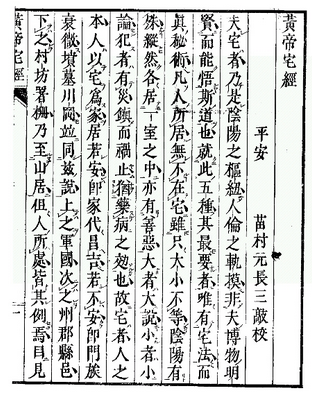 黃帝宅經
平安　苗村元長三敲校
夫宅者乃是陰陽之樞紐人倫之軌摸非夫博物明
賢而能悟斯道也就此五種其最要者唯有宅法而
眞秘術凡人所居無不在宅雖只大小不等陰陽有
殊縱然各居一室之中亦有善惡大者大說小者小
論犯者有災鎮而禍止猶藥病之効也故宅者人之
本人以宅爲家居若安即家代昌吉若不安即門族
衰微墳墓川岡並同茲說上之軍國次之州郡縣邑
下之村坊署柵乃至山居但人所處皆其例焉目見
黃帝宅經